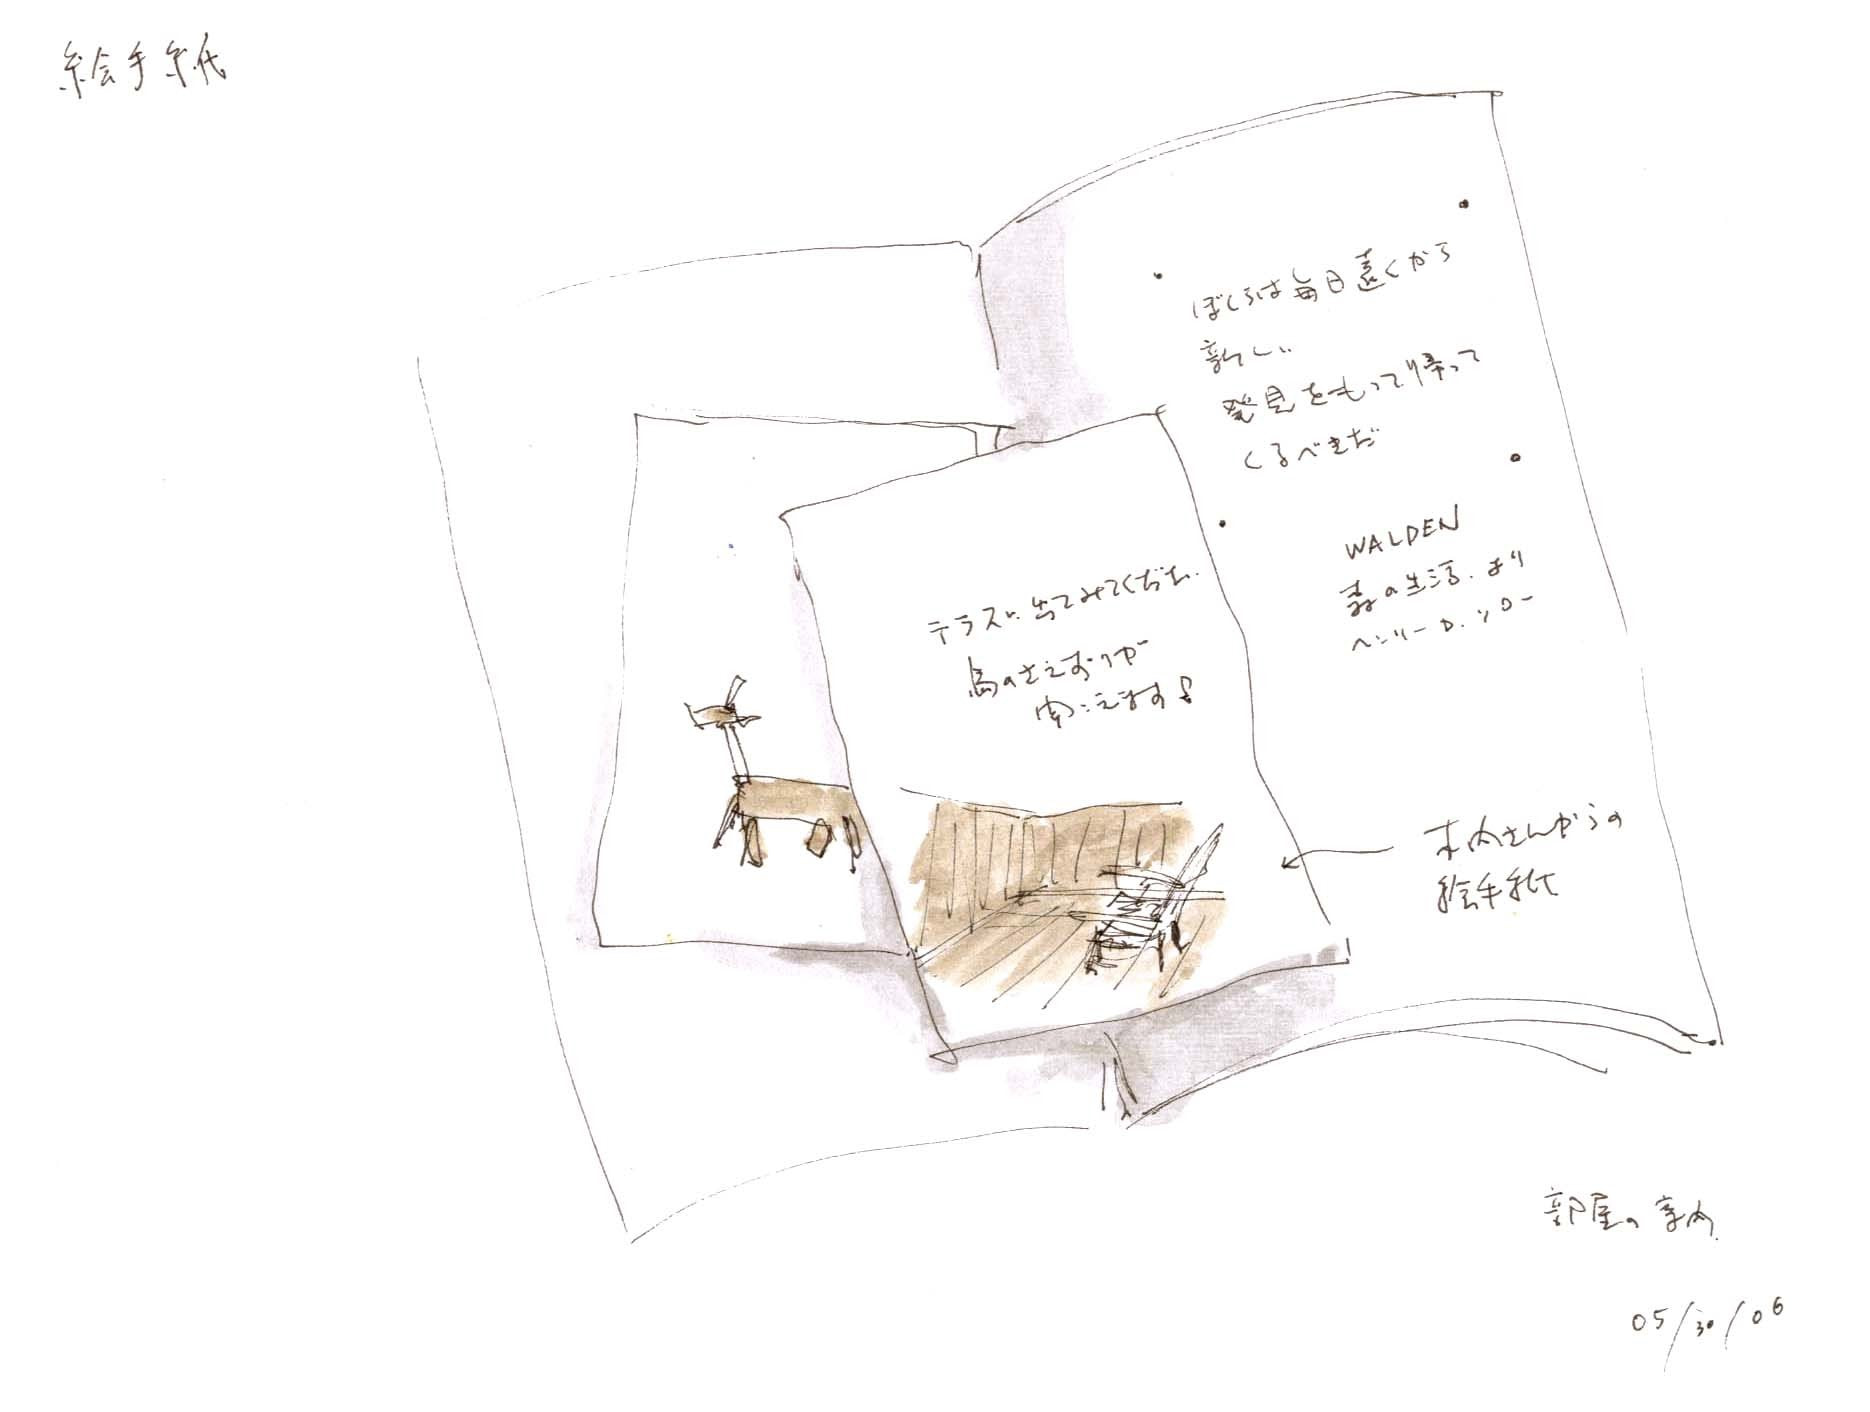 絵手紙
ぼくらは毎日遠くから
新しい
発見をもって帰って
くるべきだ
WALDEN
森の生活、より
ヘンリー D. ソロー
テラスに出てみてください
鳥のさえずりが
聞こえます!
木内さんからの
絵手紙
部屋の案内
05/30/06